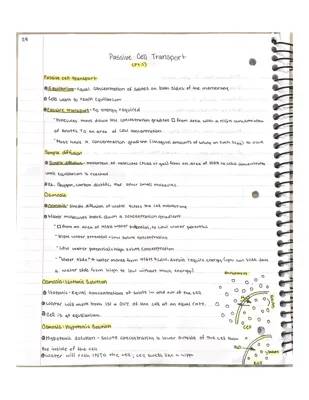 Passive Cell Transport
(Pt. 1)
Passive cell transport
Equilibrium - equal concentration of solutes on both sides of the membrane
Cells want to reach equilibrium
Passive transport - no energy required
Molecules move down the concentration gradient from area with a high concentration
of solutes to an area of low concentration
Must have a concentration gradient (unequal amounts of solute on each side) to move
Simple diffusion
Simple diffusion - movement of molecules (fluid or gas) from an area of high to low concentration
until equilibrium is reached
Ex. Oxygen, carbon dioxide, and other small molecules.
Osmosis
Osmosis - simple diffusion of water across the cell membrane
Water molecules move down a concentration gradient
from an area of high water potential to low water potential
High water potential = low solute concentration
Low water potential = high solute concentration
a water slide from high to low without much energy)
Osmosis - Isotonic Solution
Isotonic - equal concentrations of solute in and out of the cell
Water will move both IN & OUT of the cell at an equal rate.
Cell is at equilibrium.
Cell
Osmosis - Hypotonic Solution
Hypotonic Solution - solute concentration is lower outside of the cell than
the inside of the cell
Water will rush INTO the cell, cell swells like a hippo